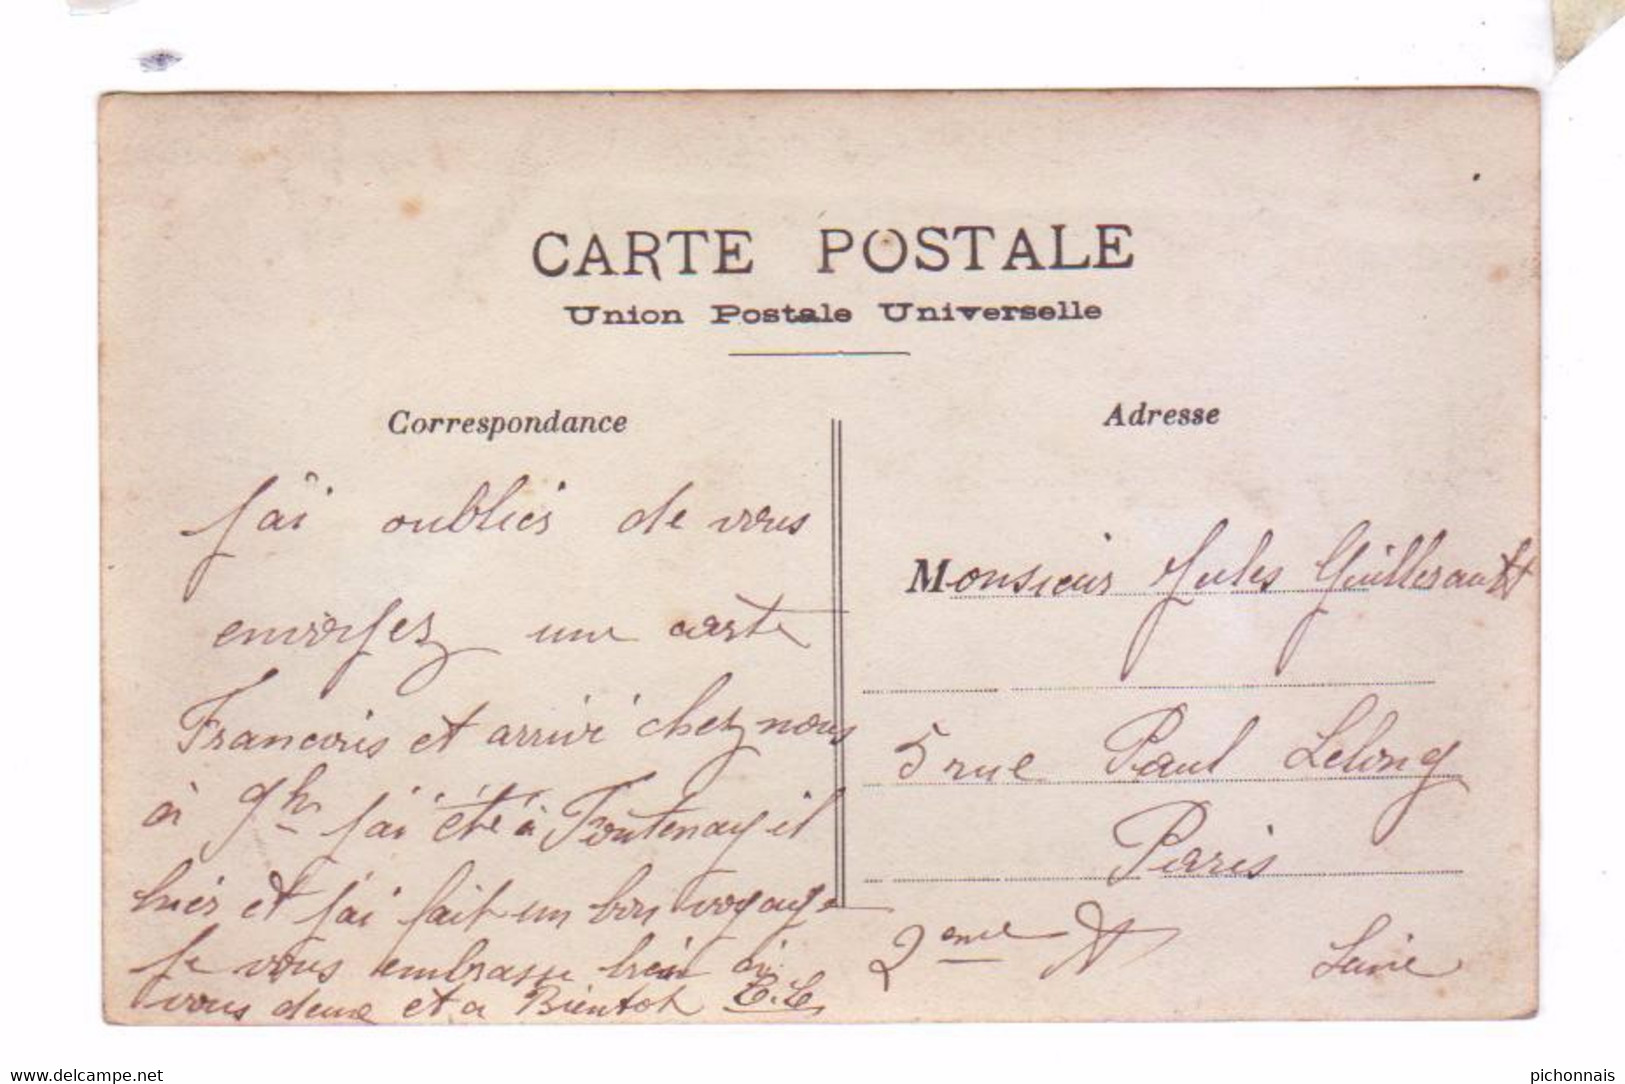 CARTE POSTALE
Union Postale Universelle
Correspondance
J'ai oublies de vous
envoyez une carte
Francois et arrivé chez nous
à 9h j'ai été à Fontenay
hier et j'ai fait un bon voyage
Je vous embrasse bien à
vous deux et a Bientot
Adresse
Monsieur Jules Guillerault
5 rue Paul Lelong
Paris
2eme
Seine
www.delcampe.net
pichonnais